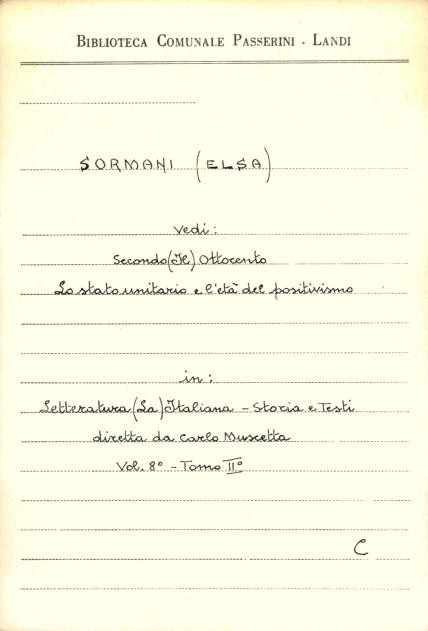 BIBLIOTECA COMUNALE PASSERINI - LANDI
SORMANI (ELSA)
vedi:
Secondo (Il) Ottocento
Lo stato unitario e l'età del positivismo
in:
Letteratura (La) Italiana - Storia e Testi
diretta da Carlo Muscetta
Vol. 8° - Tomo II°
C